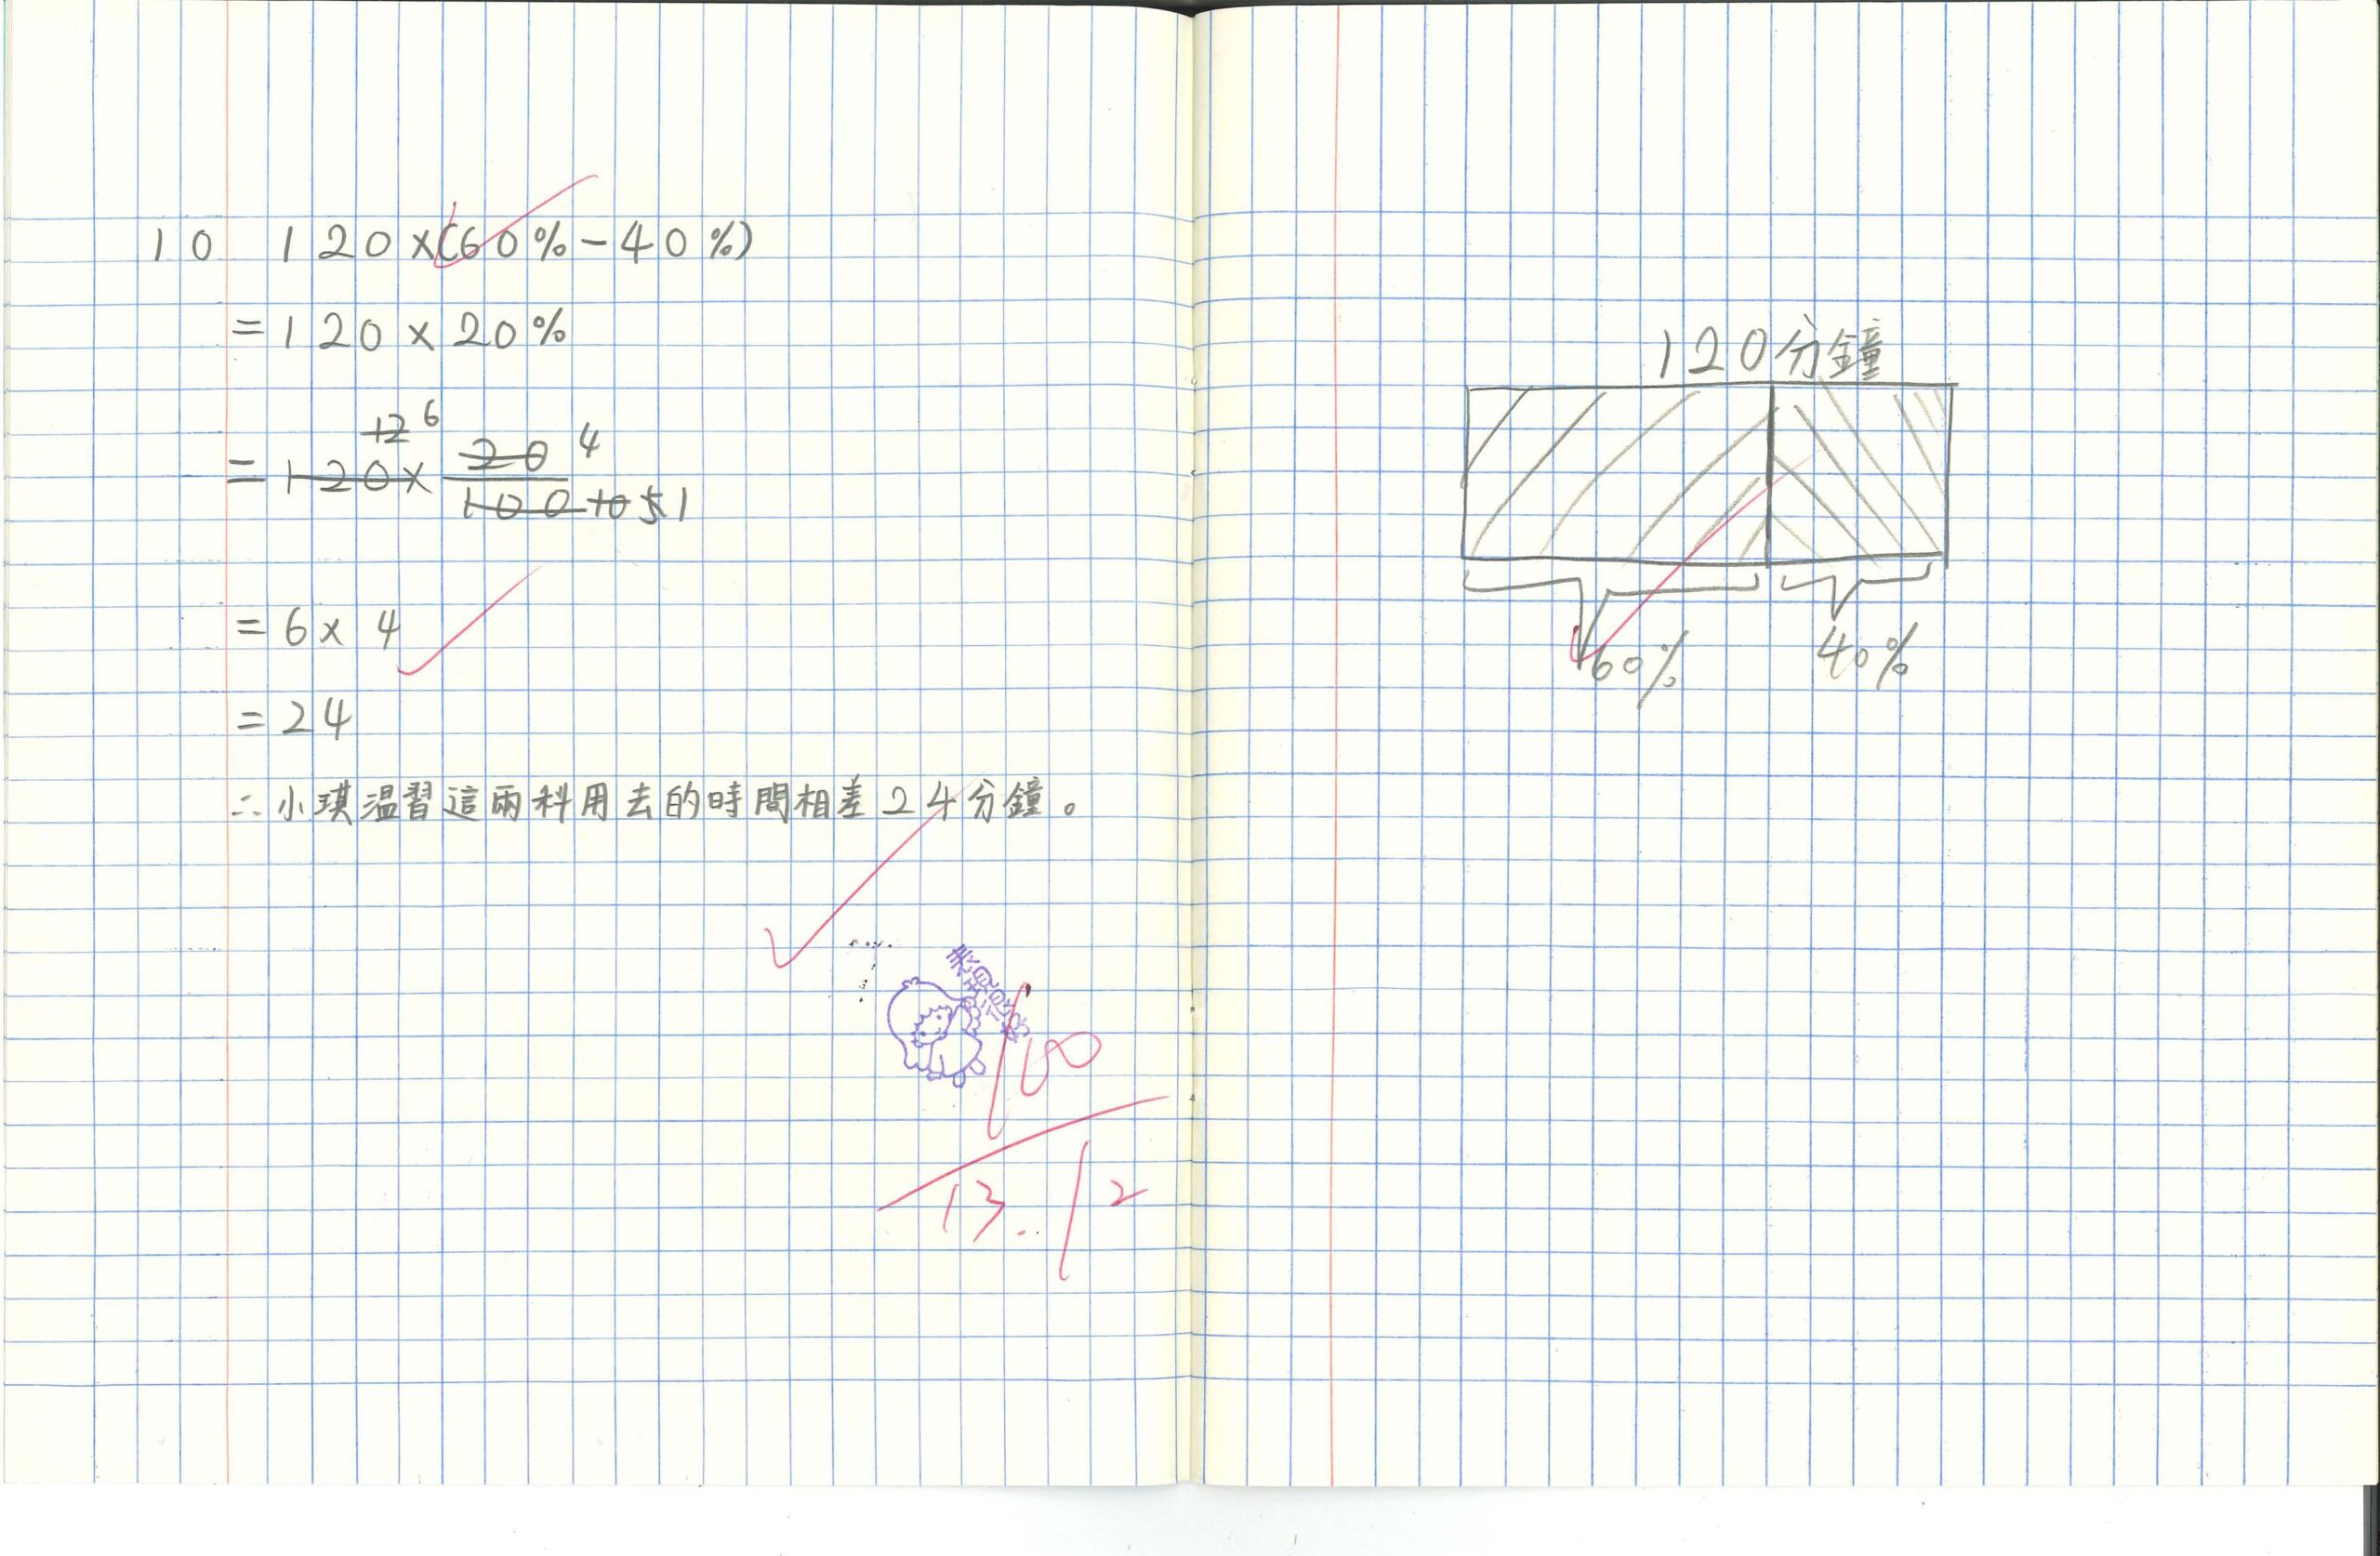 10 120×(60%-40%)
=120×20%
12 6
=120× 20/100 4 10 5 1
=6×4
=24
∴小琪温習這兩科用去的時間相差24分鐘。
100
13.12
120分鐘
60% 40%